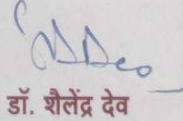 डॉ. शैलेंद्र देव